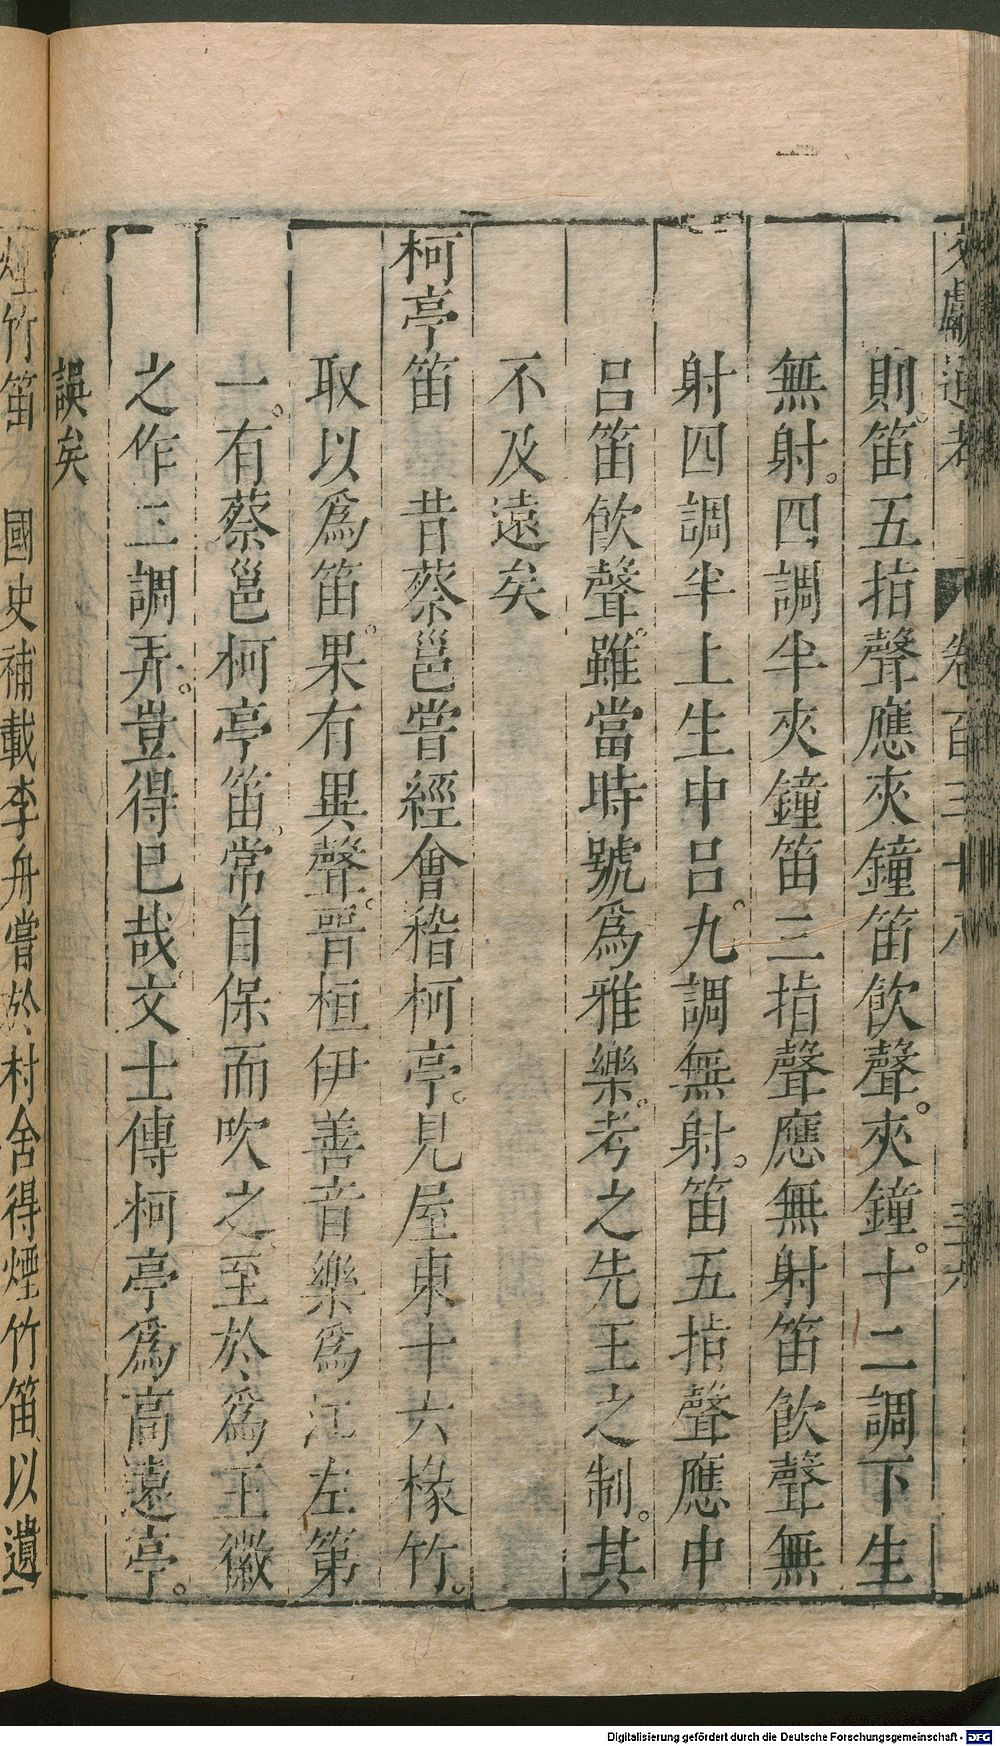 文獻通考 卷百三十八
則笛五指聲應夾鐘笛飲聲。夾鐘。十二調下生
無射。四調半夾鐘笛三指聲應無射笛飲聲無
射四調半上生中呂。九調無射。笛五指聲應中
呂笛飲聲。雖當時號爲雅樂。考之先王之制。其
不及遠矣
柯亭笛 昔蔡邕嘗經會稽柯亭。見屋東十六椽竹。
取以爲笛。果有異聲。晉桓伊善音樂爲江左第
一。有蔡邕柯亭笛。常自保而吹之。至於爲王徽
之作三調弄。豈得已哉。文士傳柯亭爲高遠亭。
誤矣
煙竹笛 國史補載李舟嘗於村舍得煙竹笛以遺
Digitalisierung gefördert durch die Deutsche Forschungsgemeinschaft - DFG